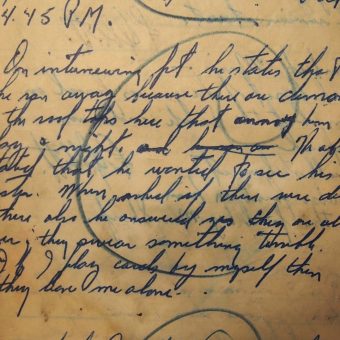 4.45 P.M.
On interviewing pt. he states that
he ran away because there are demons
the roof tops here that annoy him
day & night, and He a
that he wanted to see his
When asked if there were de
there also he answered yes they are al
they swear something terribly.
I play cards by myself then
they leave me alone.